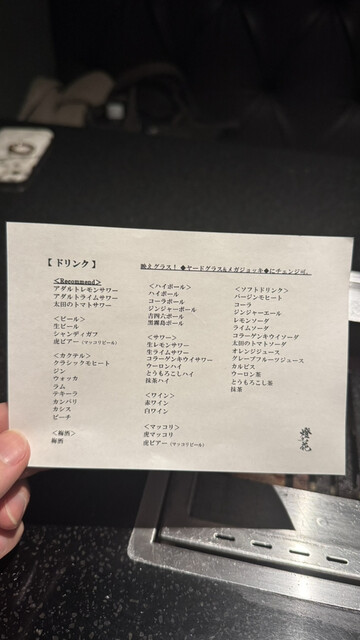 【 ドリンク 】
映えグラス！ ◆ヤードグラス&メガジョッキ◆にチェンジ可。
<Recommend>
アダルトレモンサワー
アダルトライムサワー
太田のトマトサワー
<ビール>
生ビール
シャンディガフ
虎ビアー（マッコリビール）
<カクテル>
クラシックモヒート
ジン
ウォッカ
ラム
テキーラ
カンパリ
カシス
ピーチ
<梅酒>
梅酒
<ハイボール>
ハイボール
コーラボール
ジンジャーボール
吉四六ボール
黒霧島ボール
<サワー>
生レモンサワー
生ライムサワー
コラーゲンキウイサワー
ウーロンハイ
とうもろこしハイ
抹茶ハイ
<ワイン>
赤ワイン
白ワイン
<マッコリ>
虎マッコリ
虎ビアー（マッコリビール）
<ソフトドリンク>
バージンモヒート
コーラ
ジンジャーエール
レモンソーダ
ライムソーダ
コラーゲンキウイソーダ
太田のトマトソーダ
オレンジジュース
グレープフルーツジュース
カルピス
ウーロン茶
とうもろこし茶
抹茶